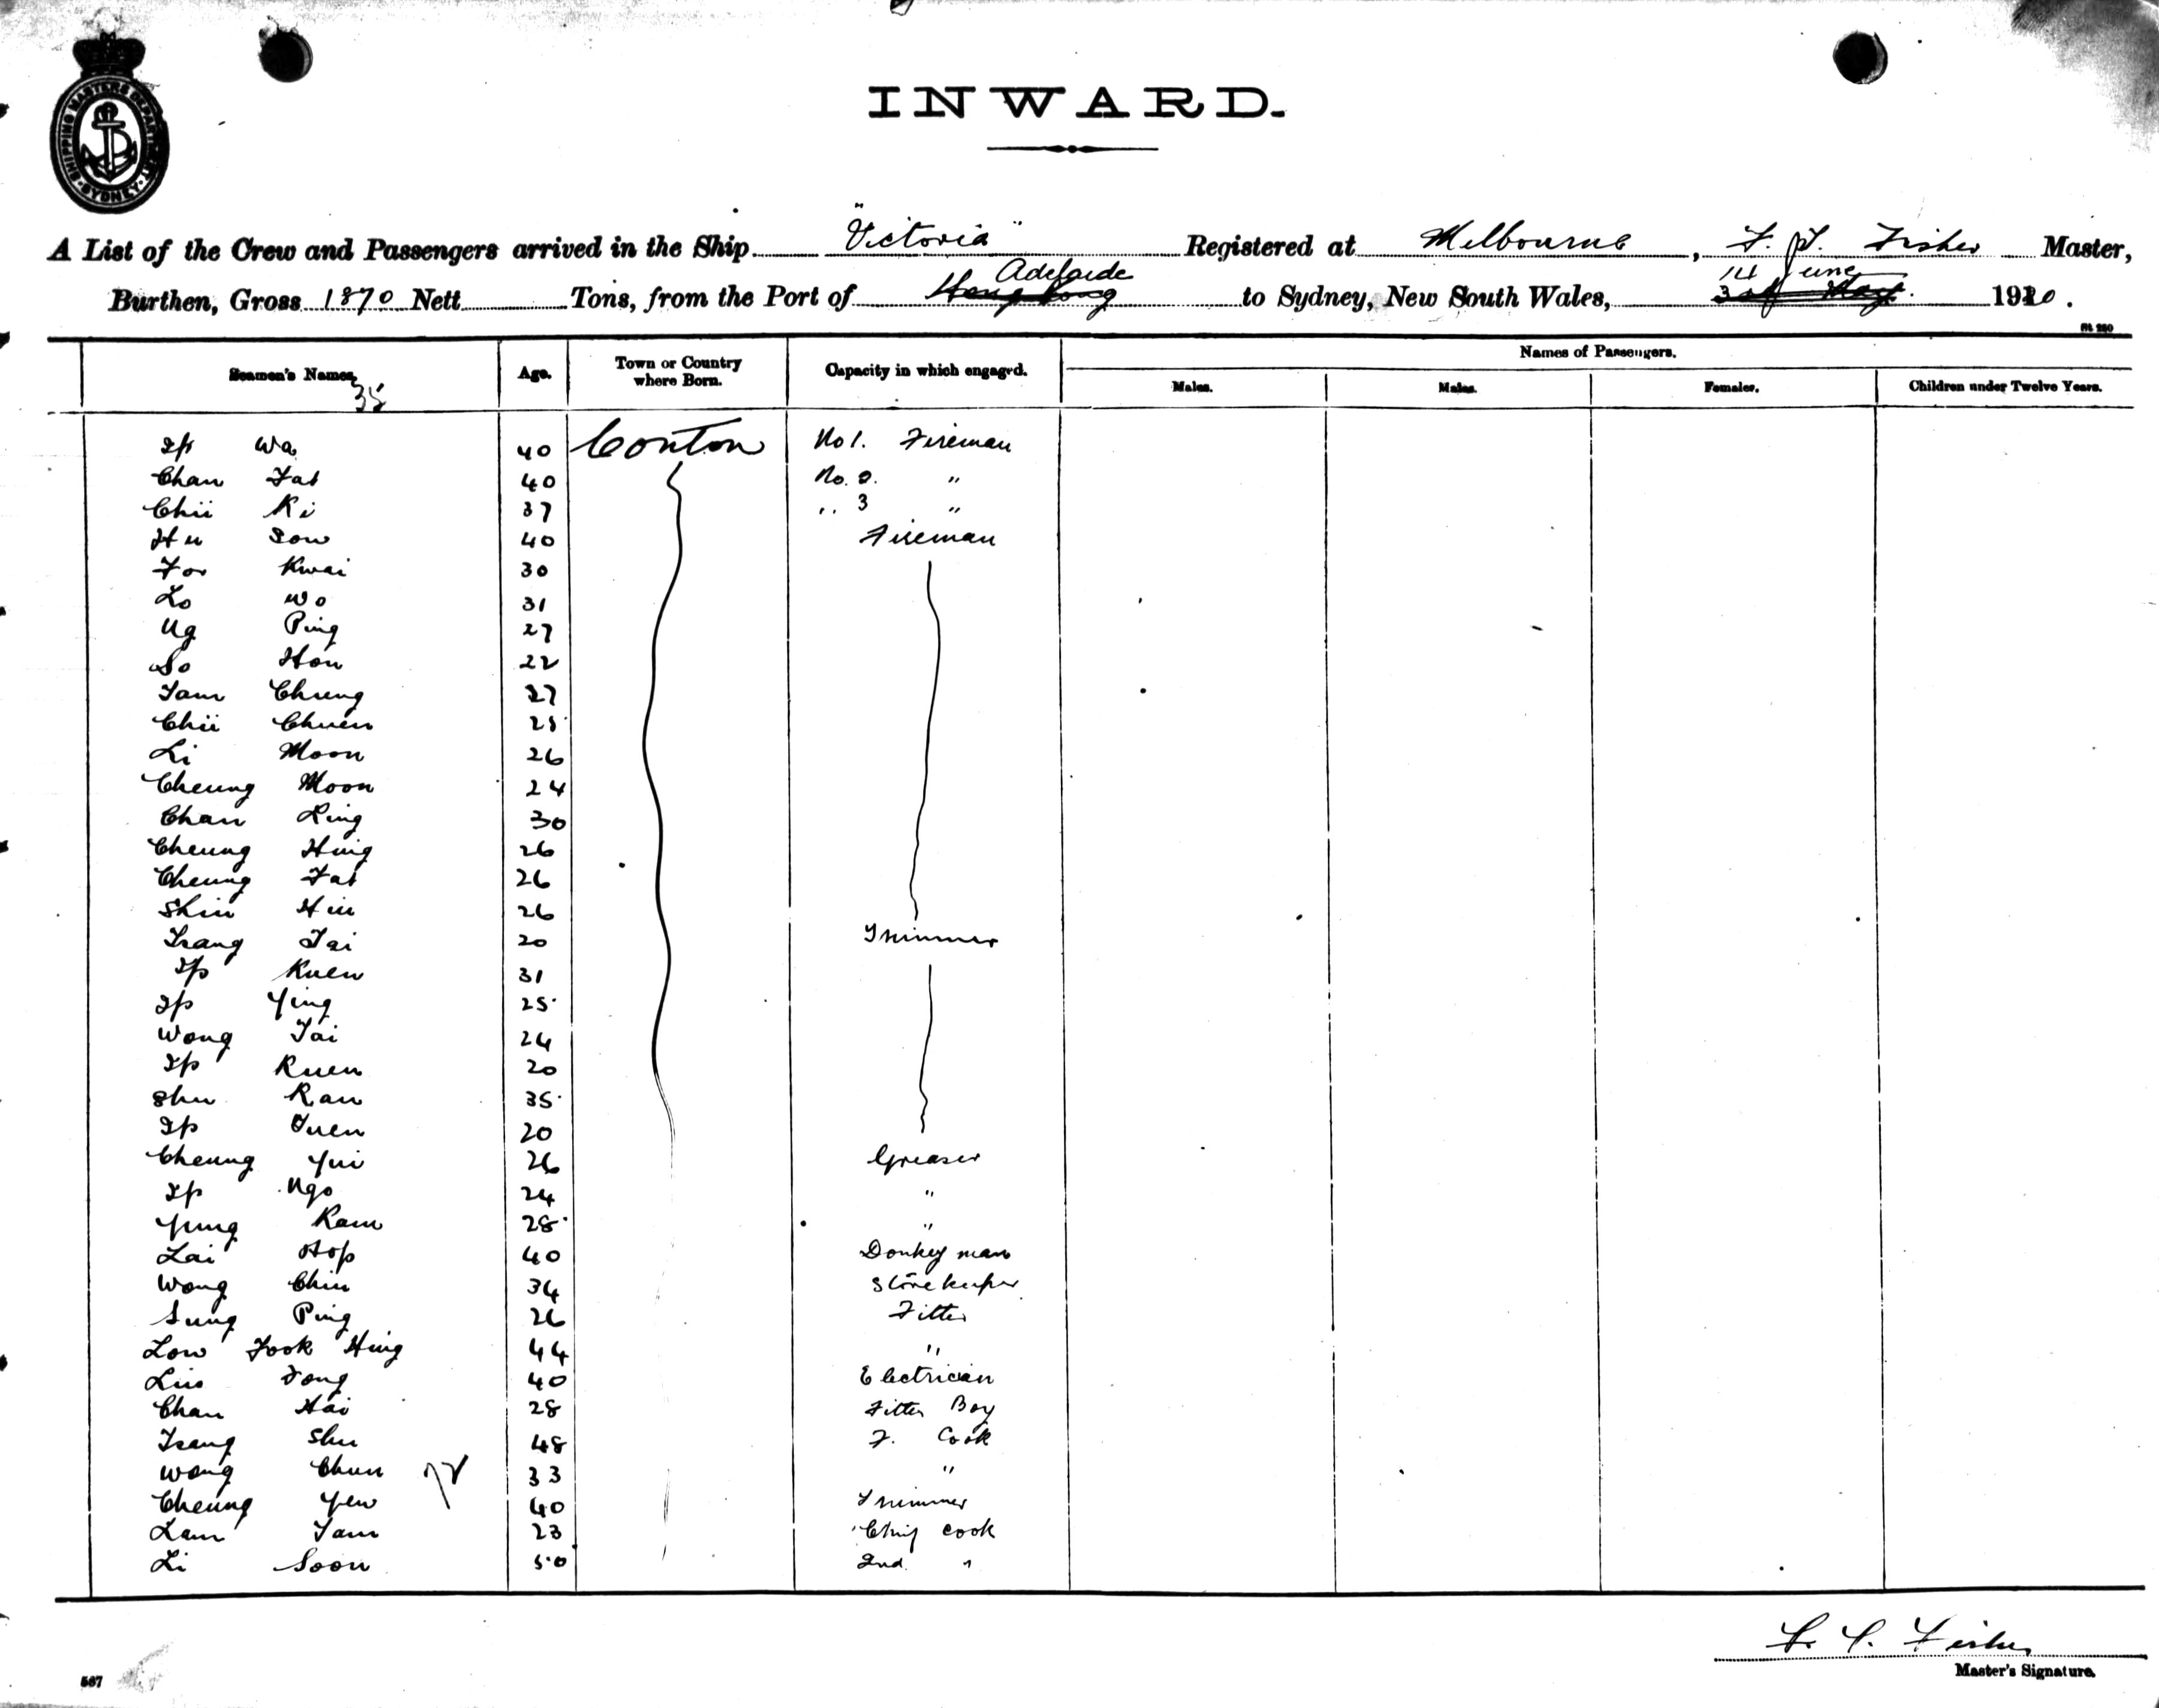 SHIPPING MASTERS DEPARTMENT SYDNEY
INWARD.
A List of the Crew and Passengers arrived in the Ship "Victoria" Registered at Melbourne, Fisher Master,
Adelaide 14 June
Burthen, Gross 1870 Nett Tons, from the Port of Hong Kong to Sydney, New South Wales, May. 1920.
Names of Passengers.
Seamen's Names. Age. Town or Country where Born. Capacity in which engaged. Males. Males. Females. Children under Twelve Years.
35
Ip Wa 40 Conton No 1. Fireman
Chan Fat 40 No. 2. "
Chii Ki 37 " 3 "
Hu Sow 40 Fireman
For Kwai 30
Lo Wo 31
Ng Ping 27
So Hon 22
Tam Cheung 27
Chii Chuen 25
Li Moon 26
Cheung Moon 24
Chan Ling 30
Cheung Hing 26
Cheung Fat 26
Shiu Hiu 26
Tsang Tai 20 Trimmer
Ip Kuen 31
Ip Ying 25
Wong Tai 24
Ip Kuen 20
Shu Kan 35
Ip Yuen 20
Cheung Yui 26 Greaser
Ip Ngo 24 "
Yung Kam 28 "
Lai Hop 40 Donkey man
Wong Chiu 34 Storekeeper
Sung Ping 26 Fitter
Low Fook Hing 44 "
Fong 40 Electrician
Chan Hai 28 Fitter Boy
Tsang Shu 48 F. Cook
Wong Chun 33 "
Cheung Yew 40 Trimmer
Lam Tam 23 Chief cook
Li Soon 50 2nd "
Fisher
Master's Signature.
567